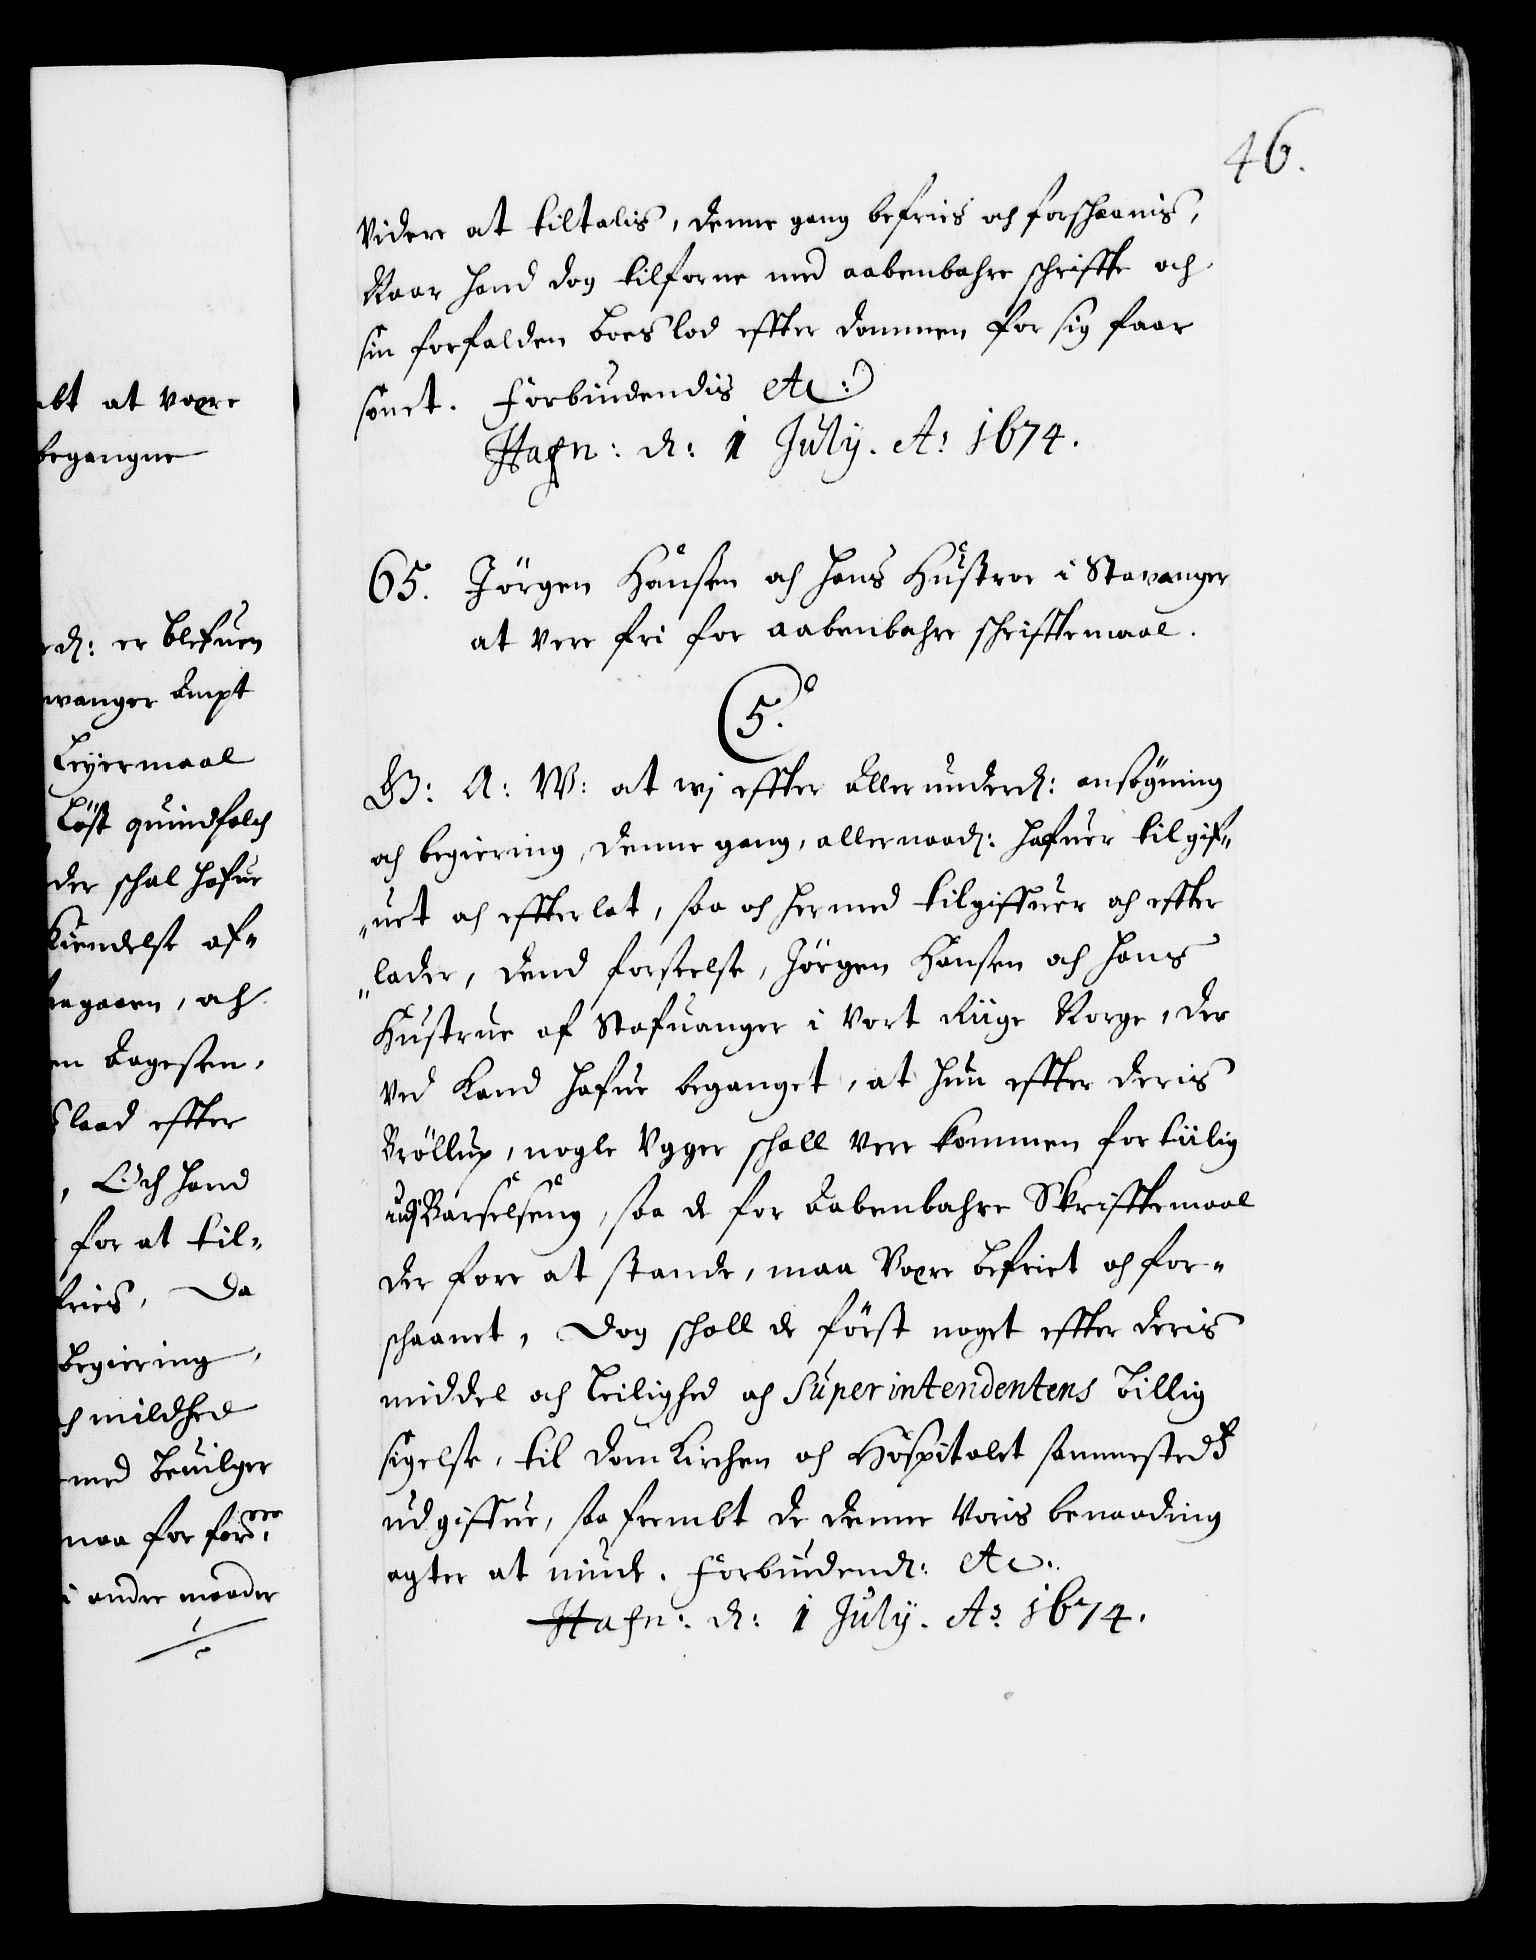 46.
Videre at tiltalis, denne gang befries och forschaanis,
Naar hand dog tilforne med aabenbahre schriffte och
sin forfalden boeslod effter dommen for sig faar
sonet. Forbiudendis etc:
Hafn: d: 1 July. Ao 1674.
65. Jörgen Hansen och hans Hustroe i Stavanger
at vere fri for aabenbahre schrifftemaal.
C 5.
G: A: W: at wj effter allerunderd: ansögning
och begiering, denne gang, allernaad: hafuer tilgif„
„uet och effterlat, saa och hermed tilgiffuer och effter
„lader, dend forseelse, Jörgen Hansen och hans
Hustrue af Stafuanger i Vort Riige Norge, der
ved Land hafue beganget, at hun effter deris
Bröllup, nogle Vgger schall vere kommen for tiilig
udj Barselseng, saa de for Aabenbahre Skrifftemaal
der fore at stande, maa Være befriet och for„
schaanet, Dog schall de först noget effter deris
middel och Leilighed och Superintendentens billig
sigelse, til Dom Kirchen och Hospitalet sammesteds
udgiffue, saa frembt de denne Voris benaading
agter at niude. Forbiudend: etc.
Hafn: d: 1 July. Ao 1674.
abt at være
begangne
d: er blefuen
wanger Ampt
Leyermaal
Löst quindfolch
der schal hafue
kiendelse af„
gaaen, och
en Aagesen,
laad effter
, Och hand
for at til„
fries, Da
begiering,
och mildhed
med bevilger
maa for
i andre maader